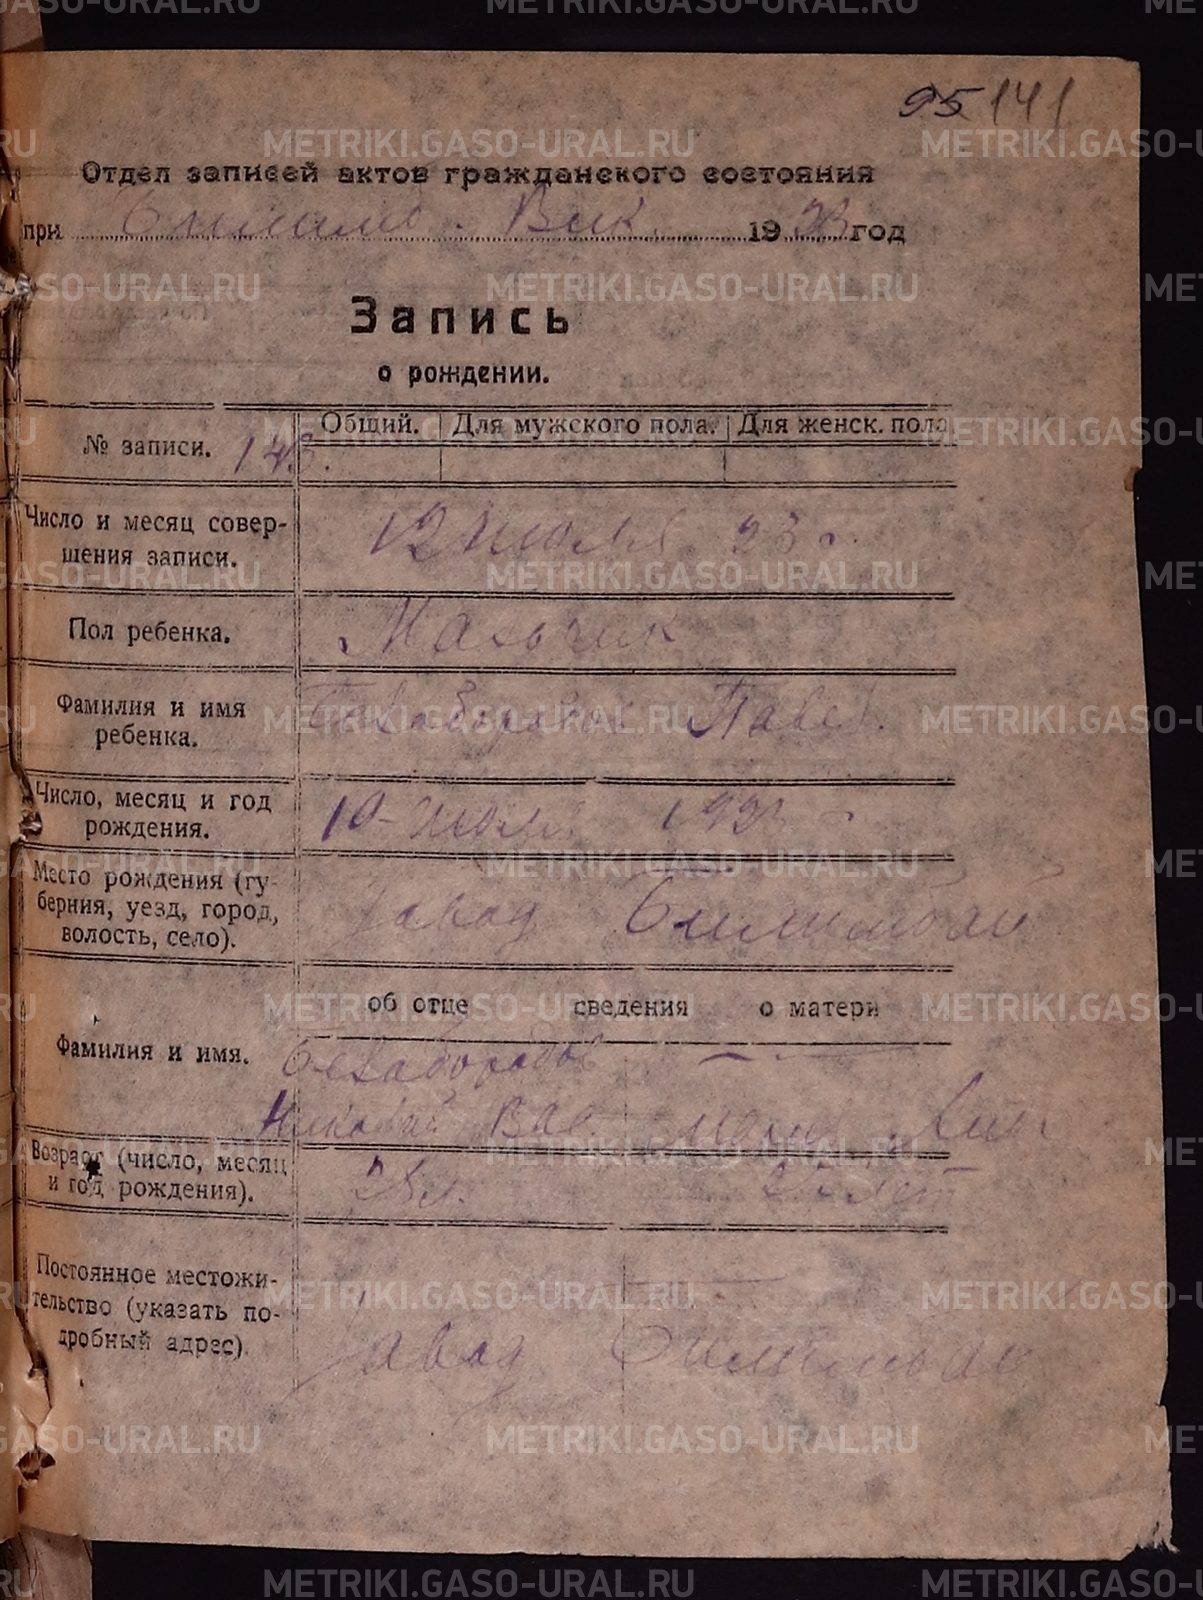 95 141
Отдел записей актов гражданского состояния
при Билимб. Вик 1923 год
Запись
о рождении.
Общий. Для мужского пола. Для женск. пола
№ записи. 143.
Число и месяц совер-
шения записи. 12 июля 23 г.
Пол ребенка. Мальчик
Фамилия и имя
ребенка. Павел.
Число, месяц и год
рождения. 10 - июля 1923 г.
Место рождения (гу-
берния, уезд, город,
волость, село). завод Билимбай
об отце сведения о матери
Фамилия и имя.
Николай Вас.
Возраст (число, месяц
и год рождения). лет
Постоянное местожи-
тельство (указать по-
дробный адрес). завод Билимбай
METRIKI.GASO-URAL.RU